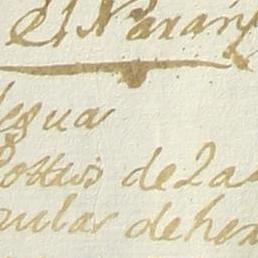 El Naran
legua
Pottros de 2 a
mular de her